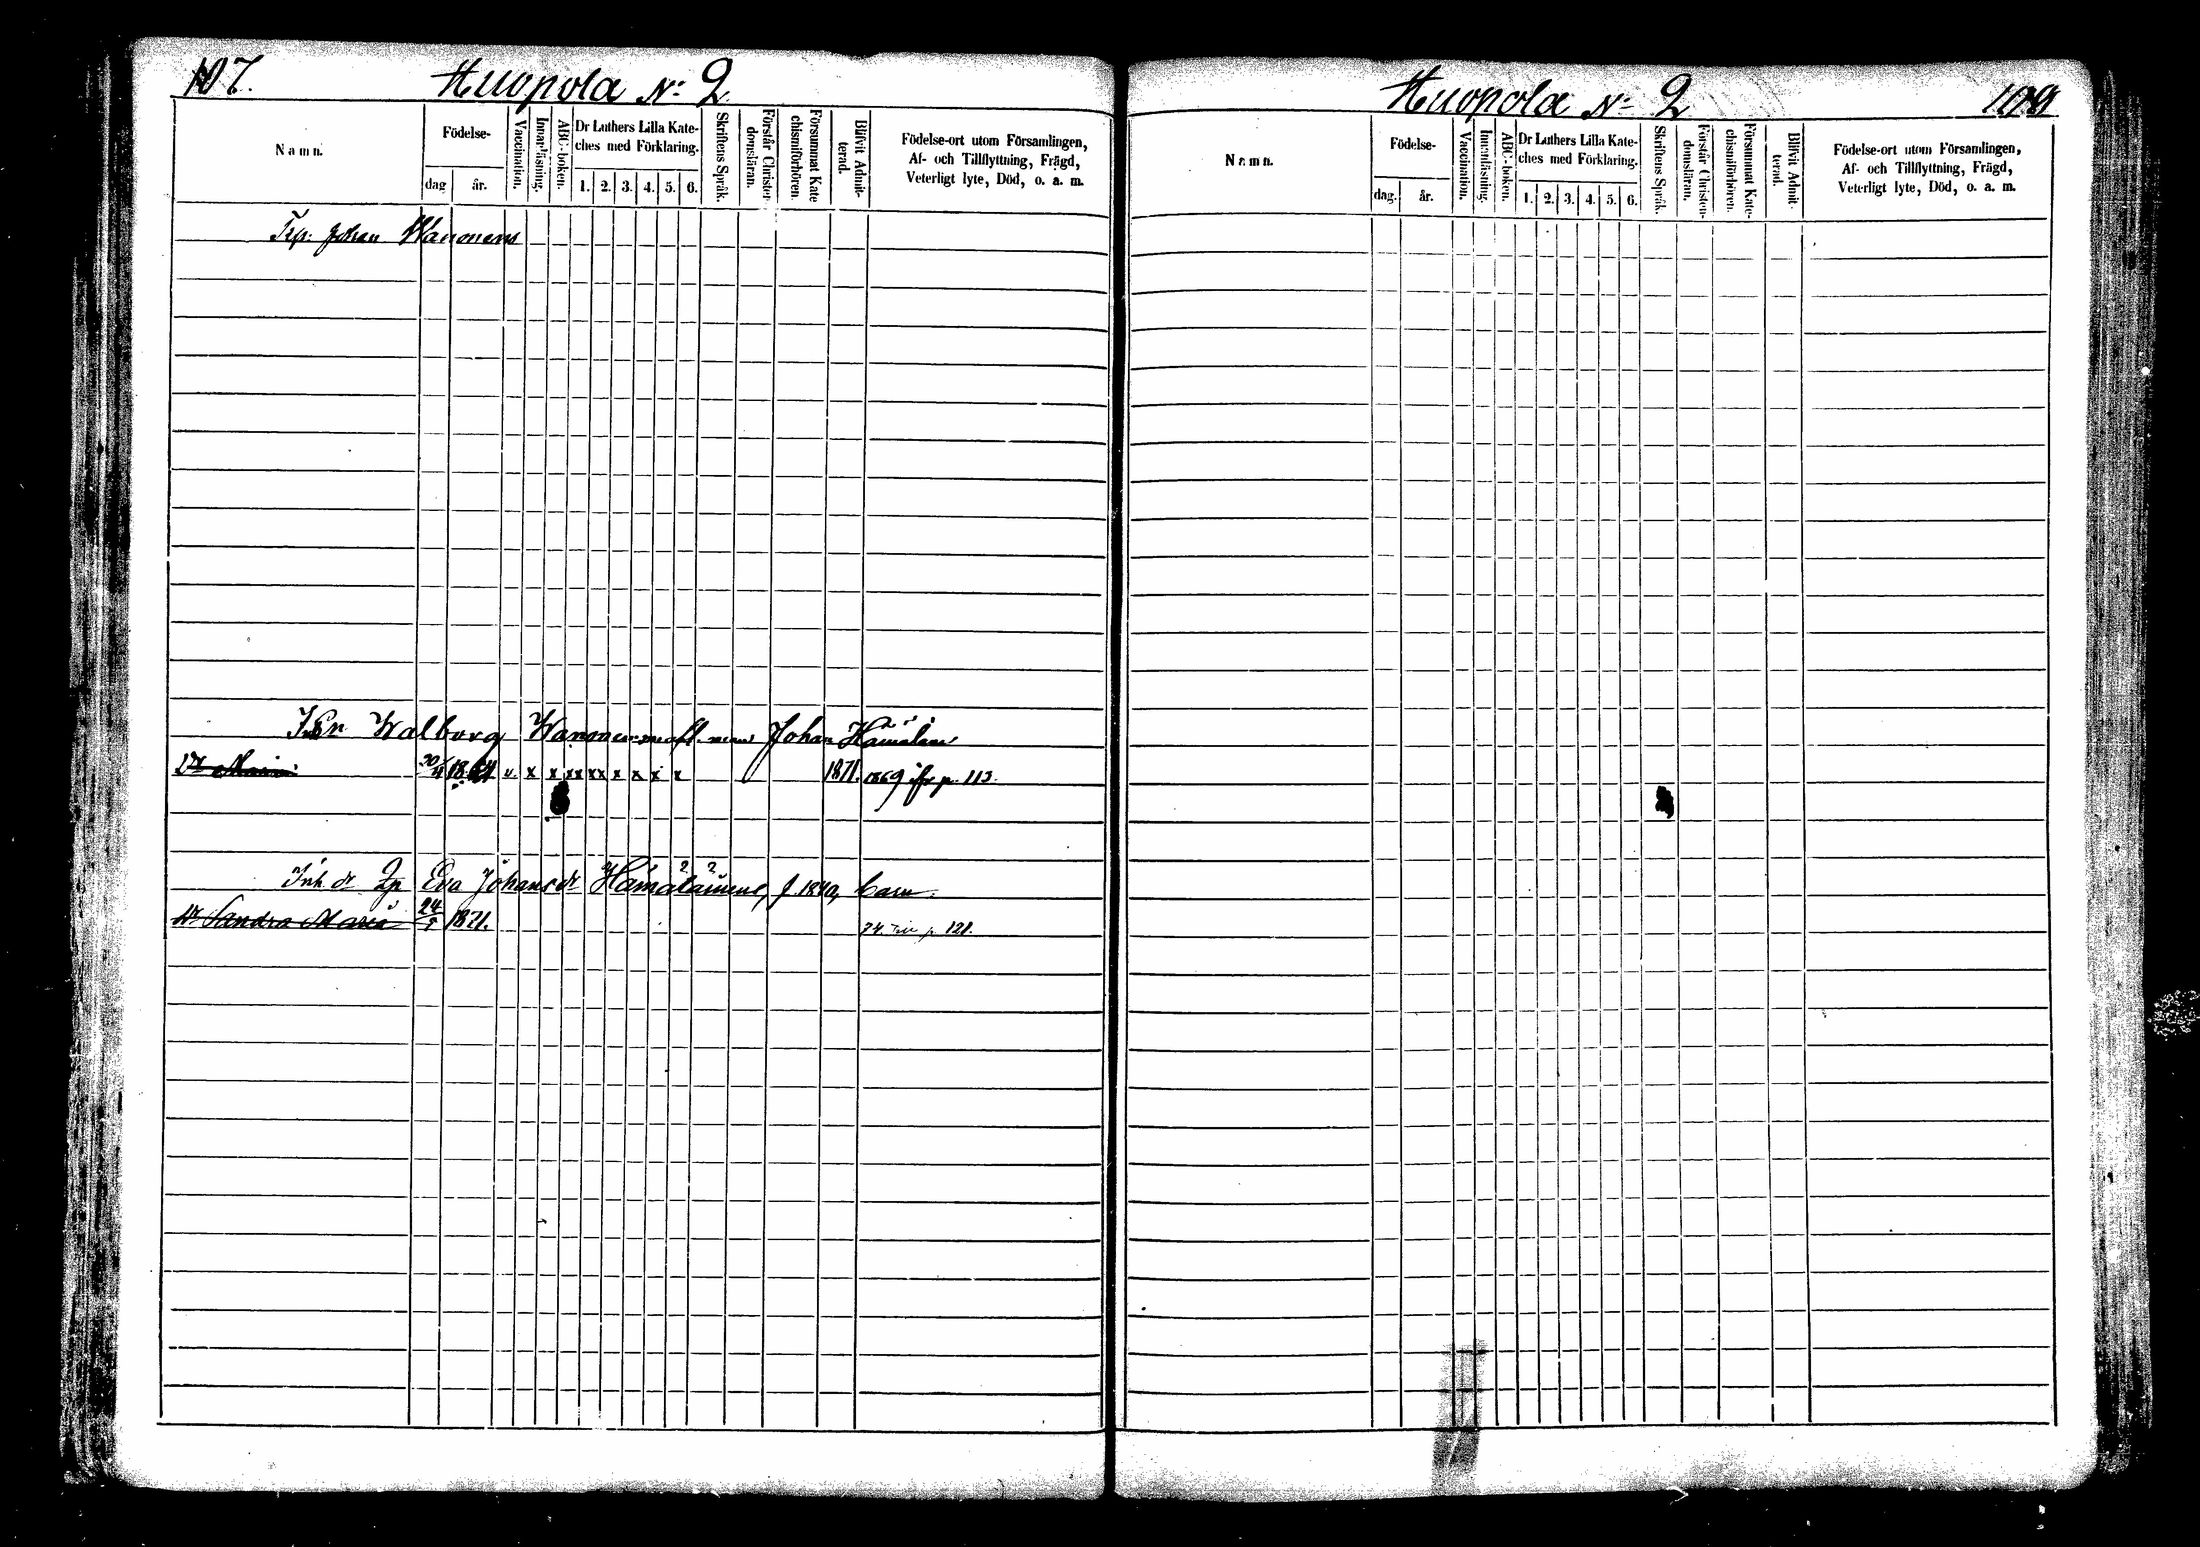 107.
Huopola No 2
Namn.
Födelse-
dag
år.
Vaccination.
Innanläsning.
ABC-boken.
Dr Luthers Lilla Kate-
ches med Förklaring.
1. 2. 3. 4. 5. 6.
Skriftens Språk.
Förstår Christen-
domsläran.
Försummat Kate
chismiförhören.
Blifvit Admit-
terad.
Födelse-ort utom Församlingen,
Af- och Tillflyttning, Frägd,
Veterligt lyte, Död, o. a. m.
Johan Wanonens
Walborg Johan
Dr Maria 20/4 v. x x xx xx x x x x 1871. 1869 p. 113.
Inh. dr Eva Johansdr Hämäläinens, f. 1840, barn.
Dr Sandra Maria 24 1871. 74 p. 121.
Huopola No 2
Namn.
Födelse-
dag.
år.
Vaccination.
Innanläsning.
ABC-boken.
Dr Luthers Lilla Kate-
ches med Förklaring.
1. 2. 3. 4. 5. 6.
Skriftens Språk.
Förstår Christen-
domsläran.
Försummat Kate-
chismiförhören.
Blifvit Admit-
terad.
Födelse-ort utom Församlingen,
Af- och Tillflyttning, Frägd,
Veterligt lyte, Död, o. a. m.